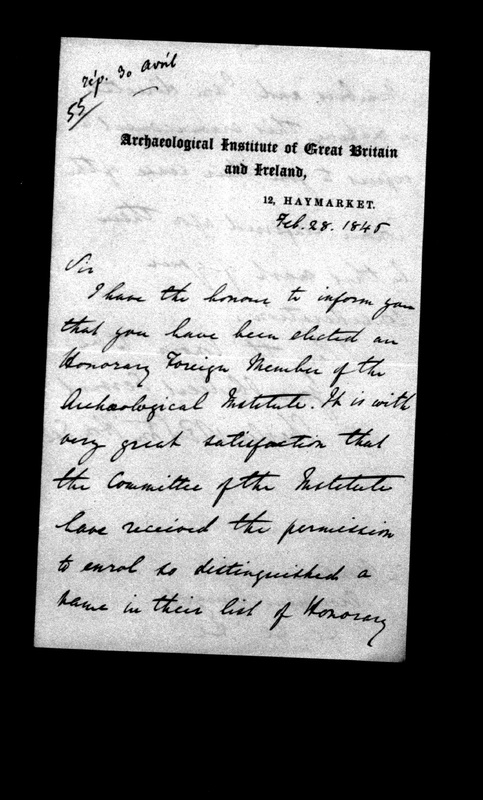 rép. 30 avril
55/
Archaeological Institute of Great Britain
and Ireland,
12, HAYMARKET.
Feb. 28. 1845
Sir
I have the honour to inform you
that you have been elected an
Honorary Foreign Member of the
Archæological Institute. It is with
very great satisfaction that
the Committee of the Institute
have received the permission
to enrol so distinguished a
name in their list of Honorary